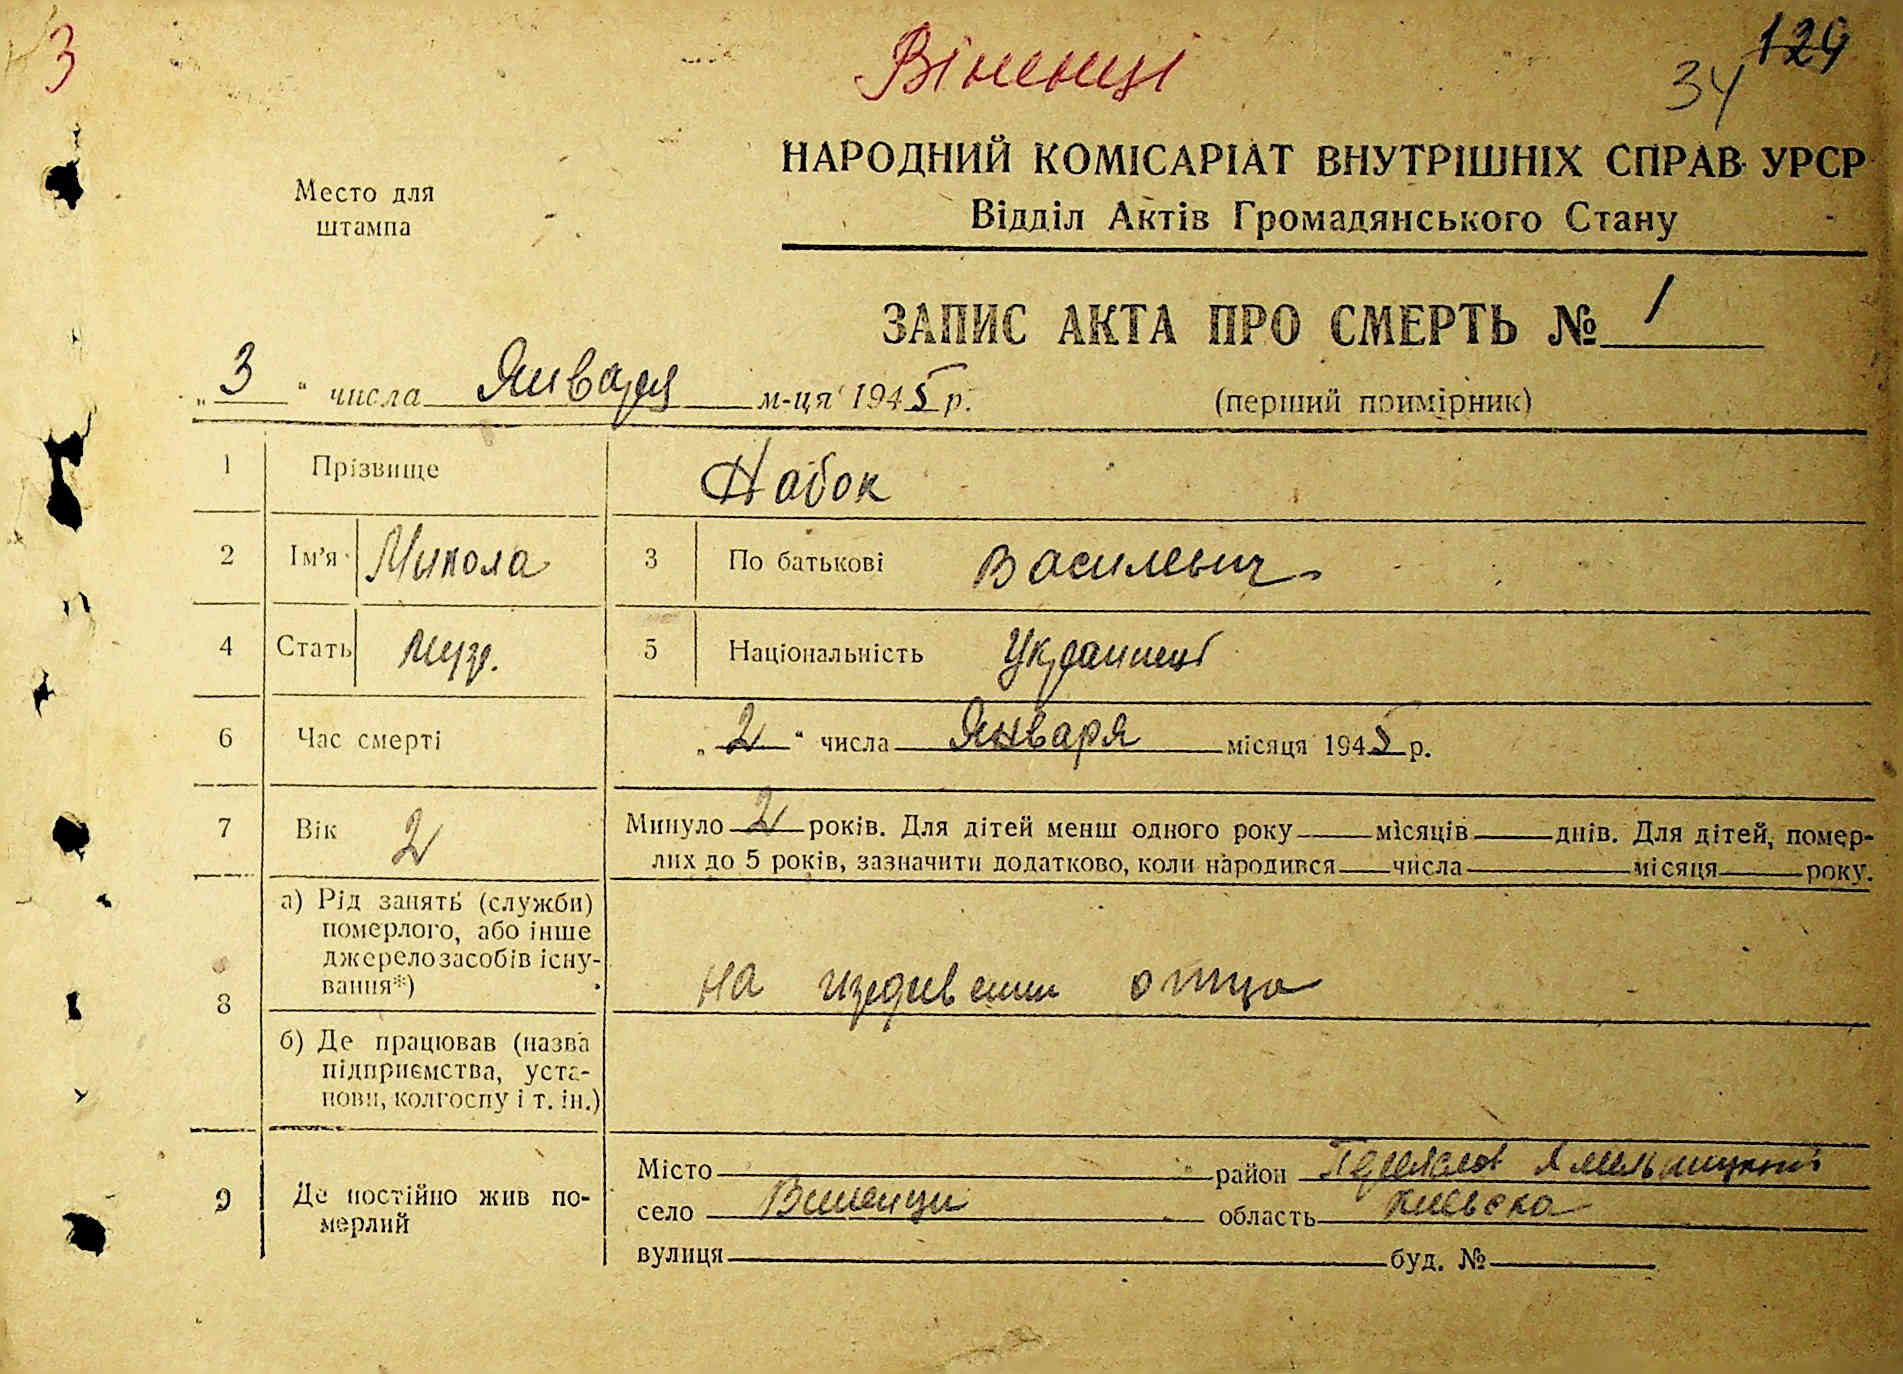 3
Віненці
129
34
Место для
штампа
НАРОДНИЙ КОМІСАРІАТ ВНУТРІШНІХ СПРАВ УРСР
Відділ Актів Громадянського Стану
ЗАПИС АКТА ПРО СМЕРТЬ № 1
„3“ числа Января м-ця 1945 р.
(перший примірник)
1 Прізвище Набок
2 Ім’я Микола 3 По батькові Василевич
4 Стать муж. 5 Національність
6 Час смерті „2“ числа Января місяця 1945 р.
7 Вік 2 Минуло 2 років. Для дітей менш одного року місяців днів. Для дітей, помер-
лих до 5 років, зазначити додатково, коли народився числа місяця року.
8 а) Рід занять (служби)
померлого, або інше
джерело засобів існу-
вання*)
на иждивении отца
б) Де працював (назва
підприємства, уста-
нови, колгоспу і т. ін.)
9 Де постійно жив по-
мерлий
Місто район Хмельницький
село Виненци область Киевска
вулиця буд. №